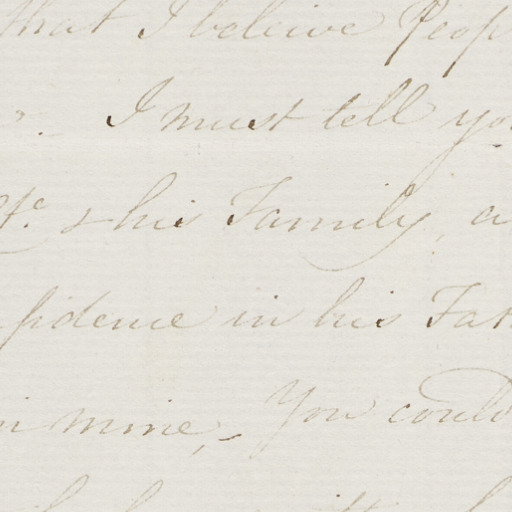 that I beleive Peop
I must tell yo
& his Family, a
fidence in his Fat
in mine,- You could